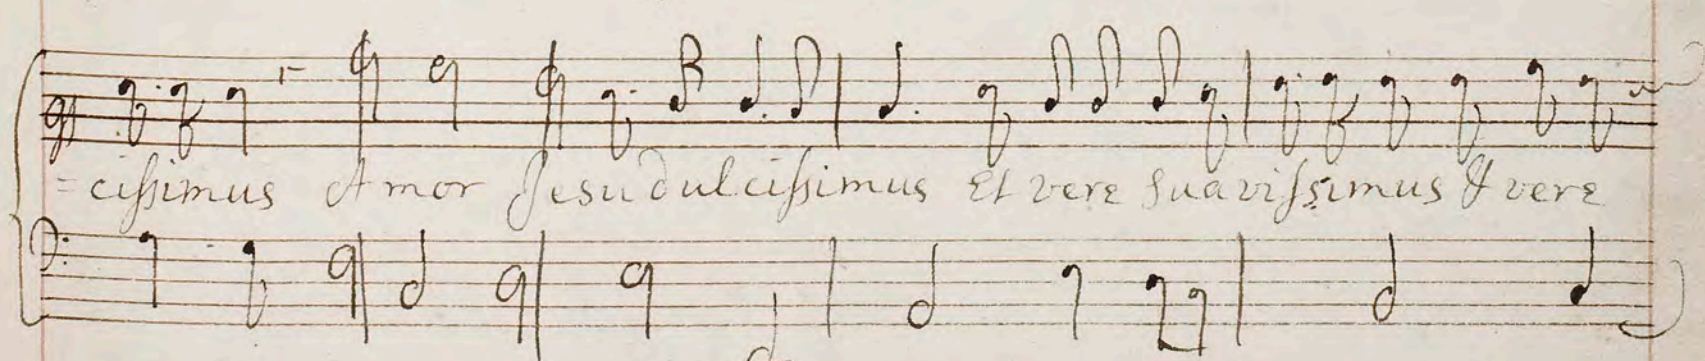 =cissimus Amor Jesu dulcissimus Et vere suavissimus Et vere